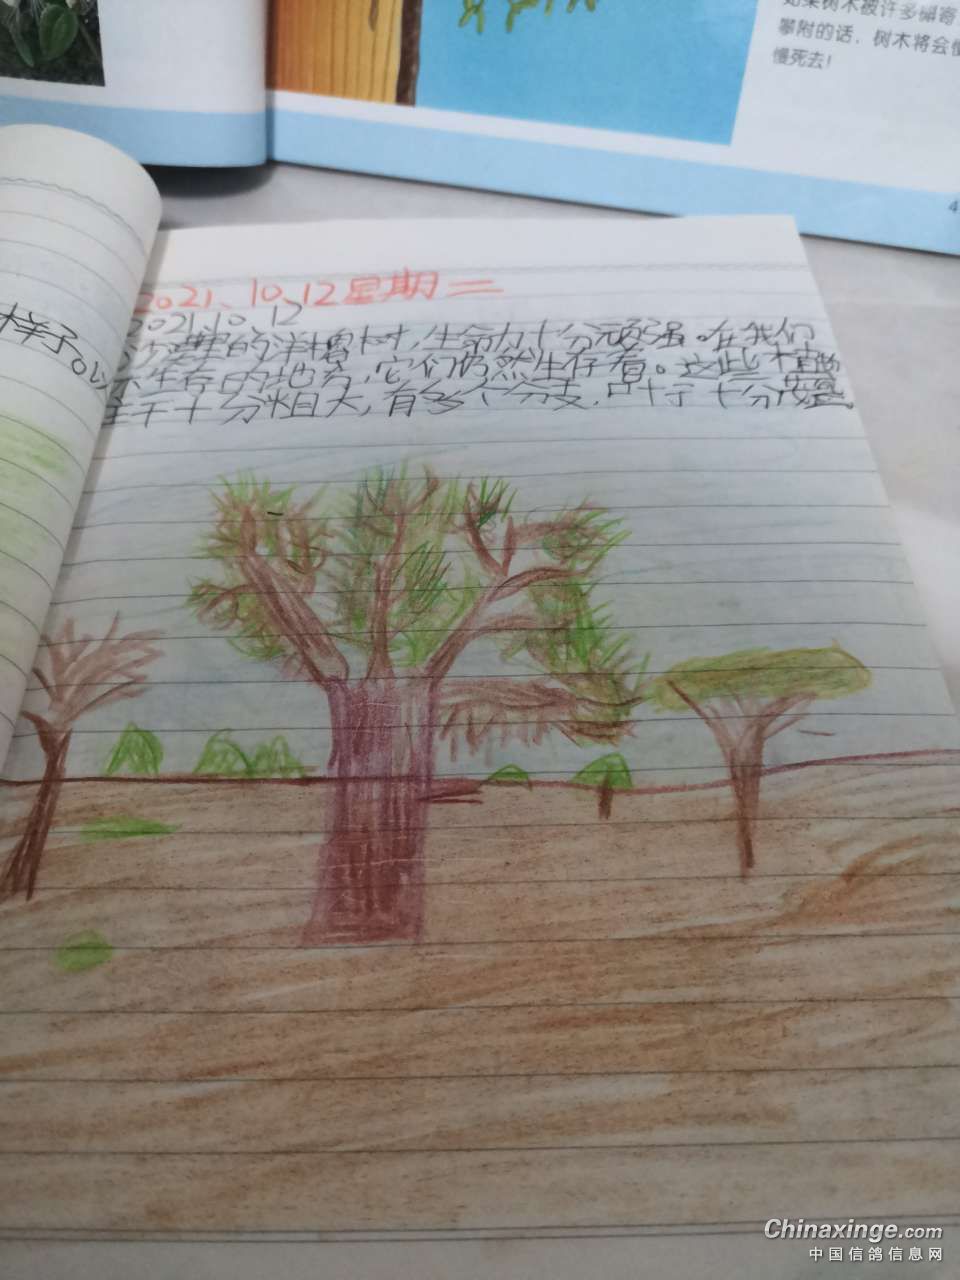 如果树木被许多槲寄
攀附的话，树木将会慢
慢死去！
4
样子。
2021、10、12星期二
2021 10 12
沙漠里的洋槐树，生命力十分顽强。在我们
生存的地方，它们仍然生存着。这些植物
主干十分粗大，有多个分支，叶子十分茂盛
Chinaxinge.com
中国信鸽信息网